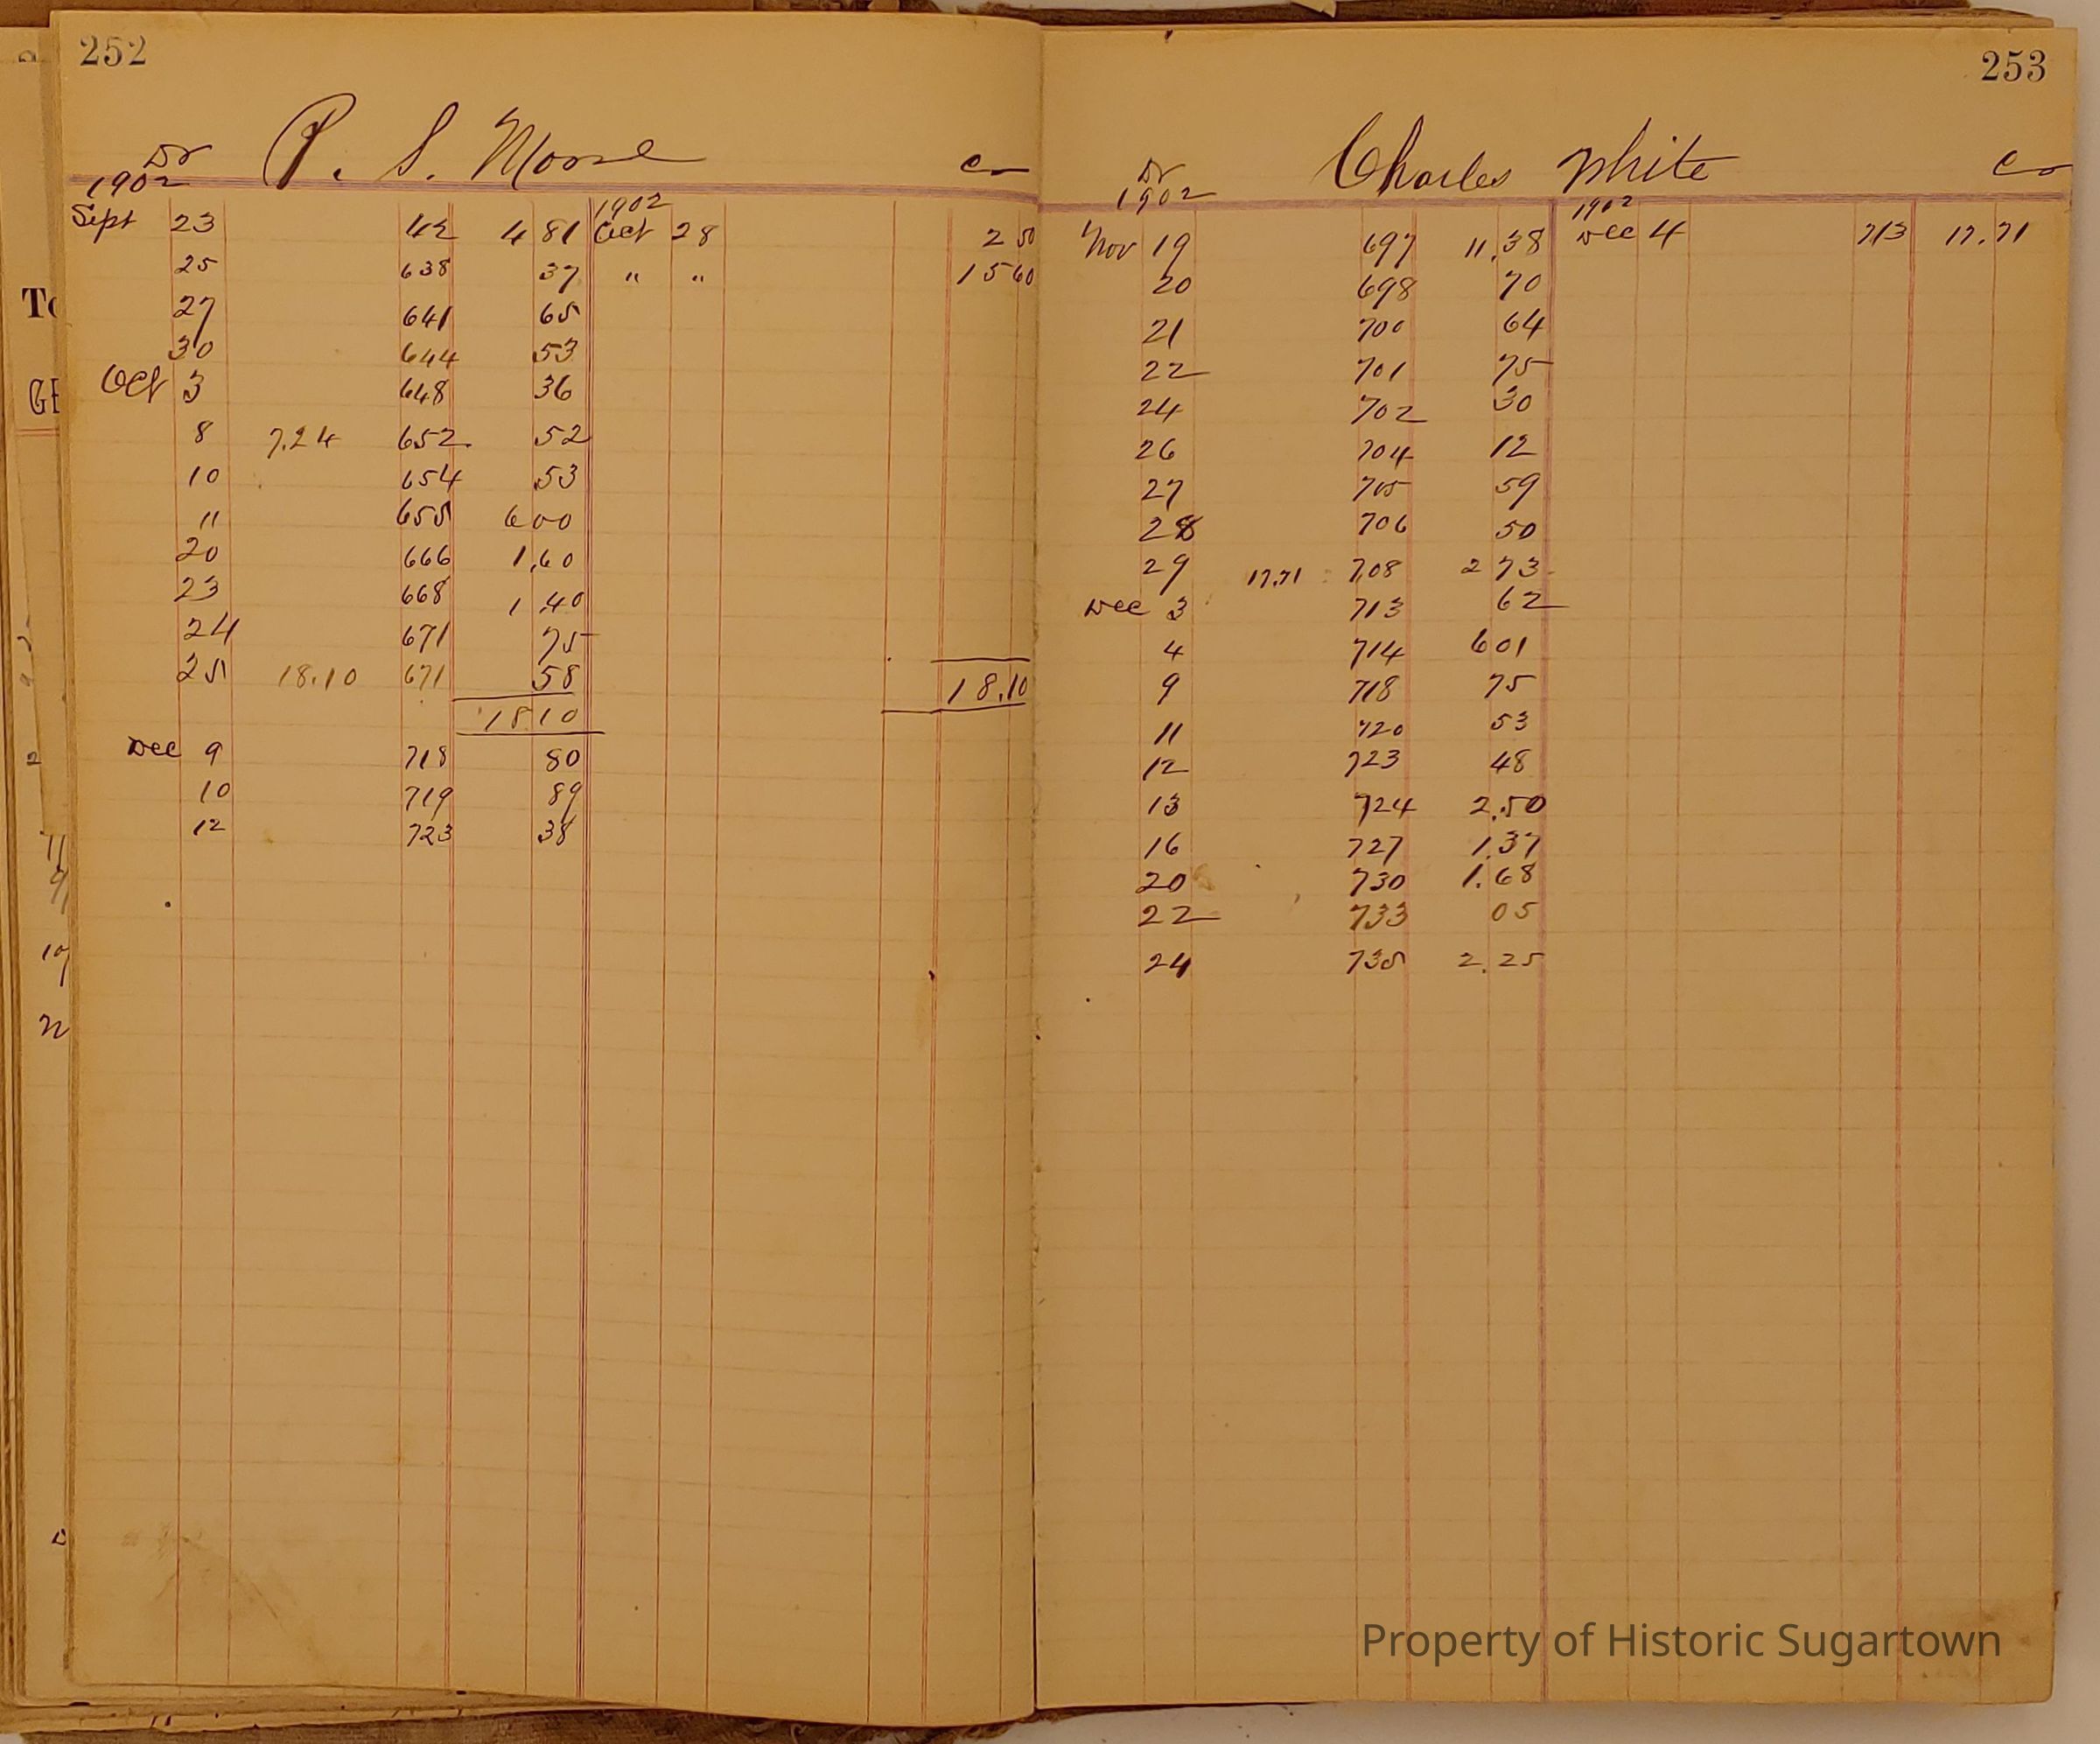 252
Dr P. S. Morse Cr
1902
1902
Sept 23 42 4 81 Oct 28 2 50
25 638 37 " " 15 60
27 641 65
30 644 53
Oct 3 648 36
8 7.24 652 52
10 654 53
11 655 6 00
20 666 1,60
23 668 1.40
24 671 75
25 18.10 671 58 18.10
18 10
Dec 9 718 80
10 719 89
12 723 38
253
Dr Charles White Cr
1902
1902
Nov 19 697 11.38 Dec 4 713 17.71
20 698 70
21 700 64
22 701 75
24 702 30
26 704 12
27 705 59
28 706 50
29 17.71 708 2 73
Dec 3 713 62
4 714 6 01
9 718 75
11 720 53
12 723 48
13 724 2.50
16 727 1.37
20 730 1.68
22 733 05
24 735 2.25
Property of Historic Sugartown